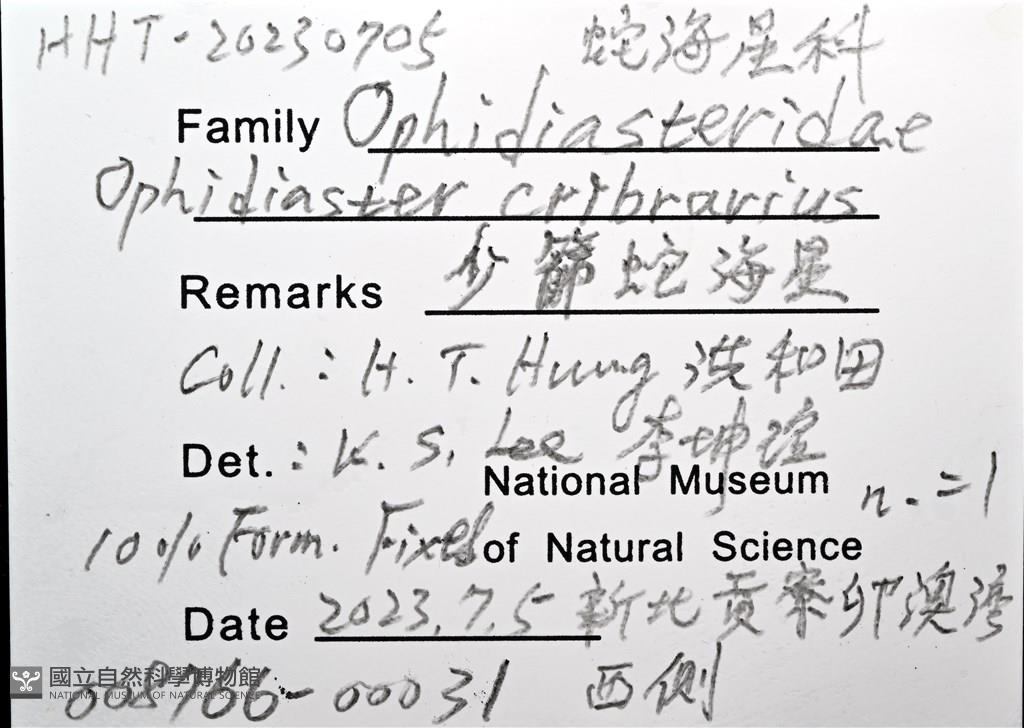 HHT-20230705 蛇海星科
Family Ophidiasteridae
Ophidiaster cribrarius
Remarks 少篩蛇海星
Coll.: H. T. Hung 洪和田
Det.: K. S. Lee 李坤瑄
National Museum n.=1
10% Form. Fixed of Natural Science
Date 2023.7.5 新北貢寮卯澳灣
國立自然科學博物館
NATIONAL MUSEUM OF NATURAL SCIENCE
-00031 西側